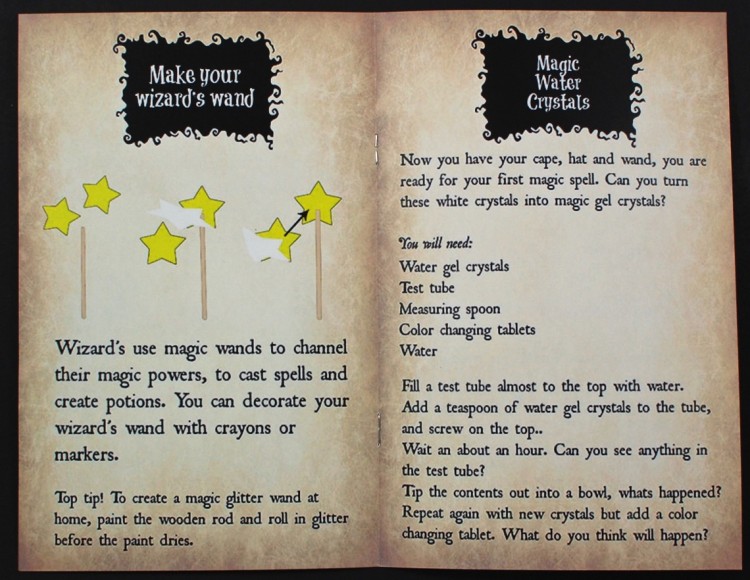 Make your
wizard's wand
Wizard's use magic wands to channel
their magic powers, to cast spells and
create potions. You can decorate your
wizard's wand with crayons or
markers.
Top tip! To create a magic glitter wand at
home, paint the wooden rod and roll in glitter
before the paint dries.
Magic
Water
Crystals
Now you have your cape, hat and wand, you are
ready for your first magic spell. Can you turn
these white crystals into magic gel crystals?
You will need:
Water gel crystals
Test tube
Measuring spoon
Color changing tablets
Water
Fill a test tube almost to the top with water.
Add a teaspoon of water gel crystals to the tube,
and screw on the top..
Wait an about an hour. Can you see anything in
the test tube?
Tip the contents out into a bowl, whats happened?
Repeat again with new crystals but add a color
changing tablet. What do you think will happen?